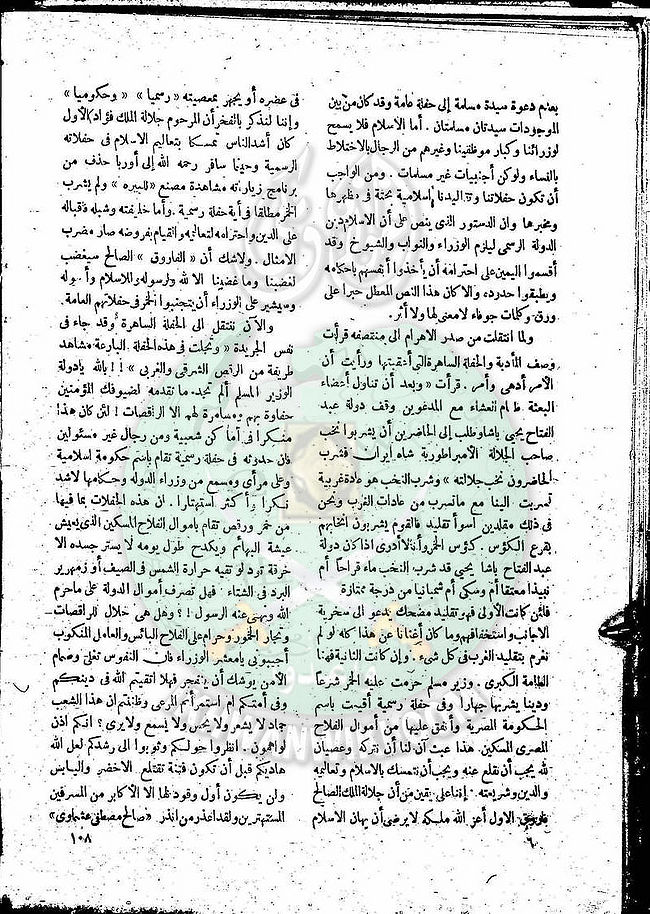 بعدم دعوة سيدة مسلمة إلى حفلة عامة وقد كان من بين
الموجودات سيدتان مسلمتان . أما الاسلام فلا يسمح
لوزرائنا وكبار موظفينا وغيرهم من الرجال بالاختلاط
بالنساء ولو كن أجنبيات غير مسلمات . ومن الواجب
أن تكون حفلاتنا وتقاليدنا إسلامية بحتة فى مظهرها
ومخبرها وان الدستور الذى ينص على أن الاسلام دين
الدولة الرسمى ليلزم الوزراء والنواب والشيوخ وقد
أقسموا اليمين على احترامه أن يأخذوا أنفسهم باحكامه
ويطبقوا حدوده والا كان هذا النص المعطل حبرا على
ورق وكلمات جوفاء لا معنى لها ولا أثر .
ولما انتقلت من صدر الاهرام الى منتصفه قرأت
وصف المأدبة والحفلة الساهرة التى أعقبتها ورأيت أن
الأمر أدهى وأمر . قرأت « وبعد أن تناول أعضاء
البعثة طعام العشاء مع المدعوين وقف دولة عبد
الفتاح يحيى باشا وطلب إلى الحاضرين أن يشربوا نخب
صاحب الجلالة الامبراطورية شاه ايران فشرب
الحاضرون نخب جلالته » وشرب النخب هو عادة غربية
تسربت الينا مع ما تسرب من عادات الغرب ونحن
فى ذلك مقلدين أسوأ تقليد فالقوم يشربون انخابهم
بقرع الكؤس . كؤس الخمر وأنا لا أدرى اذا كان دولة
عبد الفتاح باشا يحيى قد شرب النخب ماء قراحا أم
نبيذا معتقا أم وسكى أم شمبانيا من درجة ممتازة
فلئن كانت الأولى فهو تقليد مضحك يدعو الى سخرية
الاجانب واستخفافهم وما كان أغنانا عن هذا كله لو لم
نغرم بتقليد الغرب فى كل شىء . وإن كانت الثانية فهنا
الطامة الكبرى . وزير مسلم حرمت عليه الخمر شرعا
ودينا يشربها جهارا وفى حفلة رسمية أقيمت باسم
الحكومة المصرية وأنفق عليها من أموال الفلاح
المصرى المسكين . هذا عبث آن لنا أن نتركه وعصيان
لله يجب أن نقلع عنه ويجب أن نتمسك بالاسلام وتعاليمه
والدين وشريعته . إننا على يقين من أن جلالة الملك الصالح
فاروق الاول أعز الله ملكه لا يرضى أن يهان الاسلام
فى عصره أو يجهر بمعصيته « رسميا » « وحكوميا »
وإننا لنذكر بالفخر أن المرحوم جلالة الملك فؤاد الأول
كان أشد الناس تمسكا بتعاليم الاسلام فى حفلاته
الرسمية وحينما سافر رحمه الله إلى أوربا حذف من
برنامج زياراته مشاهدة مصنع « للبيره » ولم يشرب
الخمر مطلقا فى أية حفلة رسمية . وأما خليفته وشبله فاقباله
على الدين واحترامه لتعاليمه والقيام بفروضه صار مضرب
الامثال . ولا شك أن « الفاروق » الصالح سيغضب
لغضبنا وما غضبنا الا لله ولرسوله والاسلام وأصوله
وسيشير على الوزراء أن يتجنبوا الخمر فى حفلاتهم العامة .
والآن ننتقل الى الحفلة الساهرة وقد جاء فى
نفس الجريدة « وتجلت فى هذه الحفلة البارعة مشاهد
طريفة من الرقص الشرقى والغربى » ! ! بالله يا دولة
الوزير المسلم ألم تجد ما تقدمه لضيوفك المؤمنين
حفاوة بهم ومسامرة لهم الا الراقصات ! لئن كان هذا
منكرا فى أماكن شعبية ومن رجال غير مسئولين
فان حدوثه فى حفلة رسمية تقام باسم حكومة اسلامية
وعلى مرأى ومسمع من وزراء الدوله وحكامها لاشد
نكرا وأكثر استهتارا . ان هذه الحفلات بما فيها
من خمر ورقص تقام باموال الفلاح المسكين الذى يعيش
عيشة البهائم ويكدح طول يومه لا يستر جسده الا
خرقة تود لو تقيه حرارة الشمس فى الصيف أو زمهرير
البرد فى الشتاء . فهل تصرف أموال الدولة على ما حرم
الله ونهى عنه الرسول ! ؟ وهل هى حلال للراقصات
وتجار الخمور وحرام على الفلاح البائس والعامل المنكوب
أجيبونى يا معشر الوزراء فان النفوس تغلى وصمام
الأمن يوشك أن ينفجر فهلا اتقيتم الله فى دينكم
وفى أمتكم ام استمرأتم المرعى وظننتم ان هذا الشعب
جماد لا يشعر ولا يحس ولا يسمع ولا يرى ؟ انكم اذن
لواهمون . انظروا حولكم وثوبوا الى رشدكم لعل الله
هاديكم قبل أن تكون فتنة تقتلع الاخضر واليابس
ولن يكون أول وقود لها الا الأكابر من المسرفين
المستهترين ولقد اعذر من انذر . « صالح مصطفى عشماوى »
٦
١٠٨